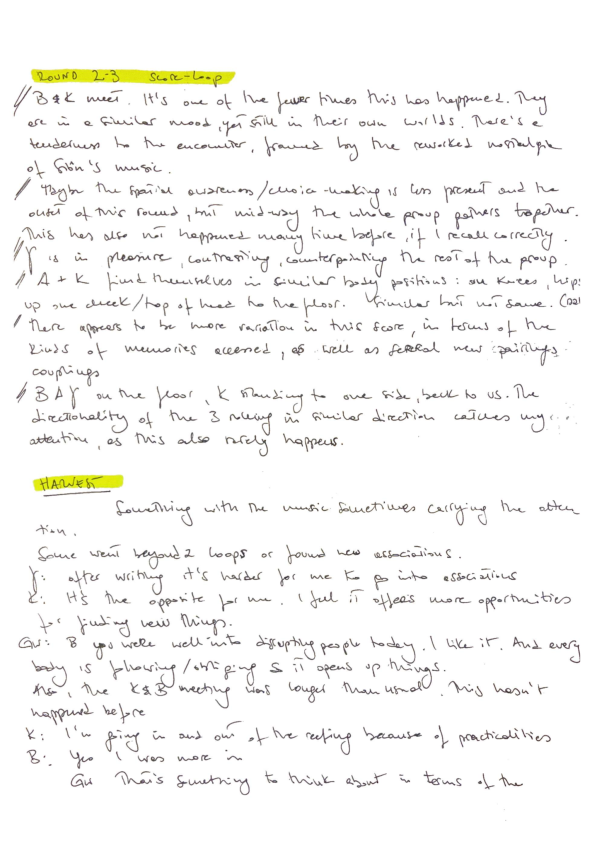 ROUND 2-3 Score-Loop
// B & K meet. It's one of the fewer times this has happened. They
are in a similar mood, yet still in their own worlds. There's a
tenderness to the encounter, framed by the reworked nostalgia
of Siôn's music.
// Maybe the spatial awareness/choice-making is less present and the
outset of this round, but midway the whole group gathers together.
This has also not happened many time before, if I recall correctly.
// Y is in pleasure, contrasting, counterpointing the rest of the group.
// A + K find themselves in similar body positions: on knees, hips
up one cheek/top of head to the floor. Similar but not same.
// There appears to be more variation in this score, in terms of the
kinds of memories accessed, as well as several new pairings
couplings
// B A Y on the floor, K standing to one side, back to us. The
directionality of the 3 in similar direction catches my
attention, as this also rarely happens.
HARVEST
Something with the music sometimes carrying the atten
tion.
Some went beyond 2 loops or found new associations.
Y: after writing it's harder for me to go into associations
K: It's the opposite for me. I feel it offers more opportunities
for finding new things.
Gu: B you were well into disrupting people today. I like it. And every
body is following/obliging & it opens up things.
Also, the K&B meeting was longer than usual. This hasn't
happened before
K: I'm going in and out of the because of practicalities
B: Yes I was more in
Gu That's something to think about in terms of the